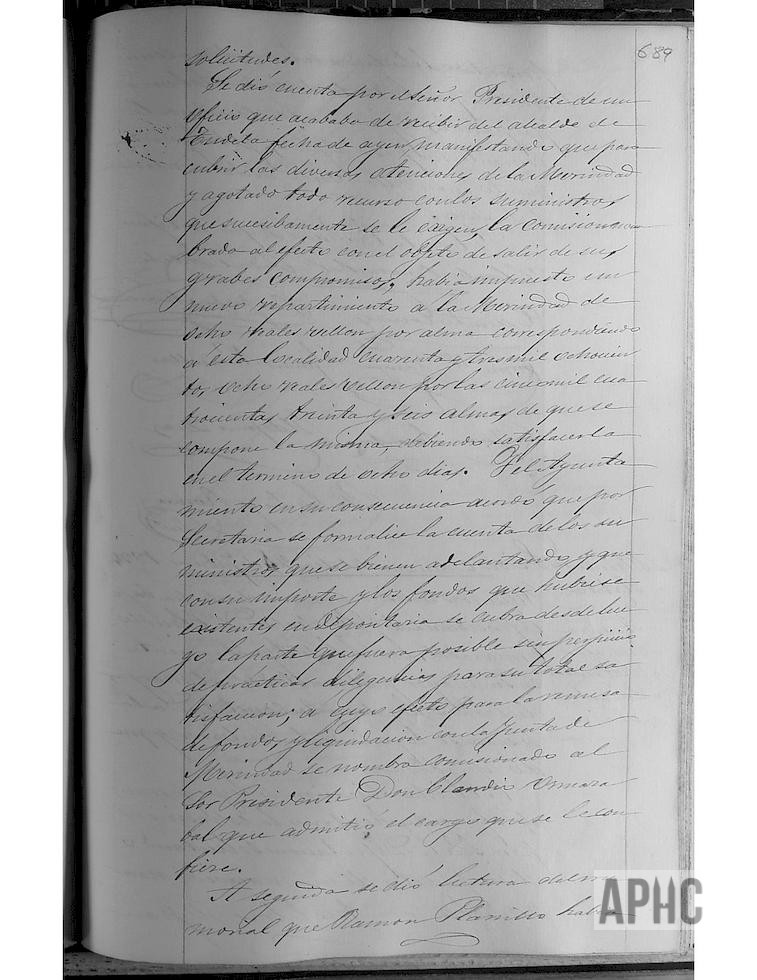 689
solicitudes.
Se dió cuenta por el Señor Presidente de un
oficio que acababa de recibir del alcalde de
Tudela fecha de ayer, manifestando que para
cubrir las diversas atenciones de la Merindad
y agotado todo recurso con los suministros
que sucesibamente se le exigen, la comision nom
brada al efecto con el objeto de salir de sus
grabes compromisos, habia impuesto un
nuevo repartimiento a la Merindad de
ocho reales vellon por alma correspondiendo
a esta localidad cuarenta y tres mil ochocien
tos, ocho reales vellon por las cinco mil cua
trocientas treinta y seis almas de que se
compone la misma, debiendo satisfacerla
en el termino de ocho dias. Y el Ayunta
miento en su consecuencia acordó que por
Secretaria se formalice la cuenta de los su
ministros que se bienen adelantando y que
con su importe y los fondos que hubiese
existentes en depositaria se cubra desde lue
go la parte que fuera posible sin perjuicio
de practicar diligencias para su total sa
tisfaccion; a cuyo efecto para la remesa
de fondos y liquidacion con la Junta de
Merindad se nombra comisionado al
Sor Presidente Don Claudio
que admitió el cargo que se le con
fiere.
A seguida se dió lectura del me
morial que Ramon Planillo habia
APHC